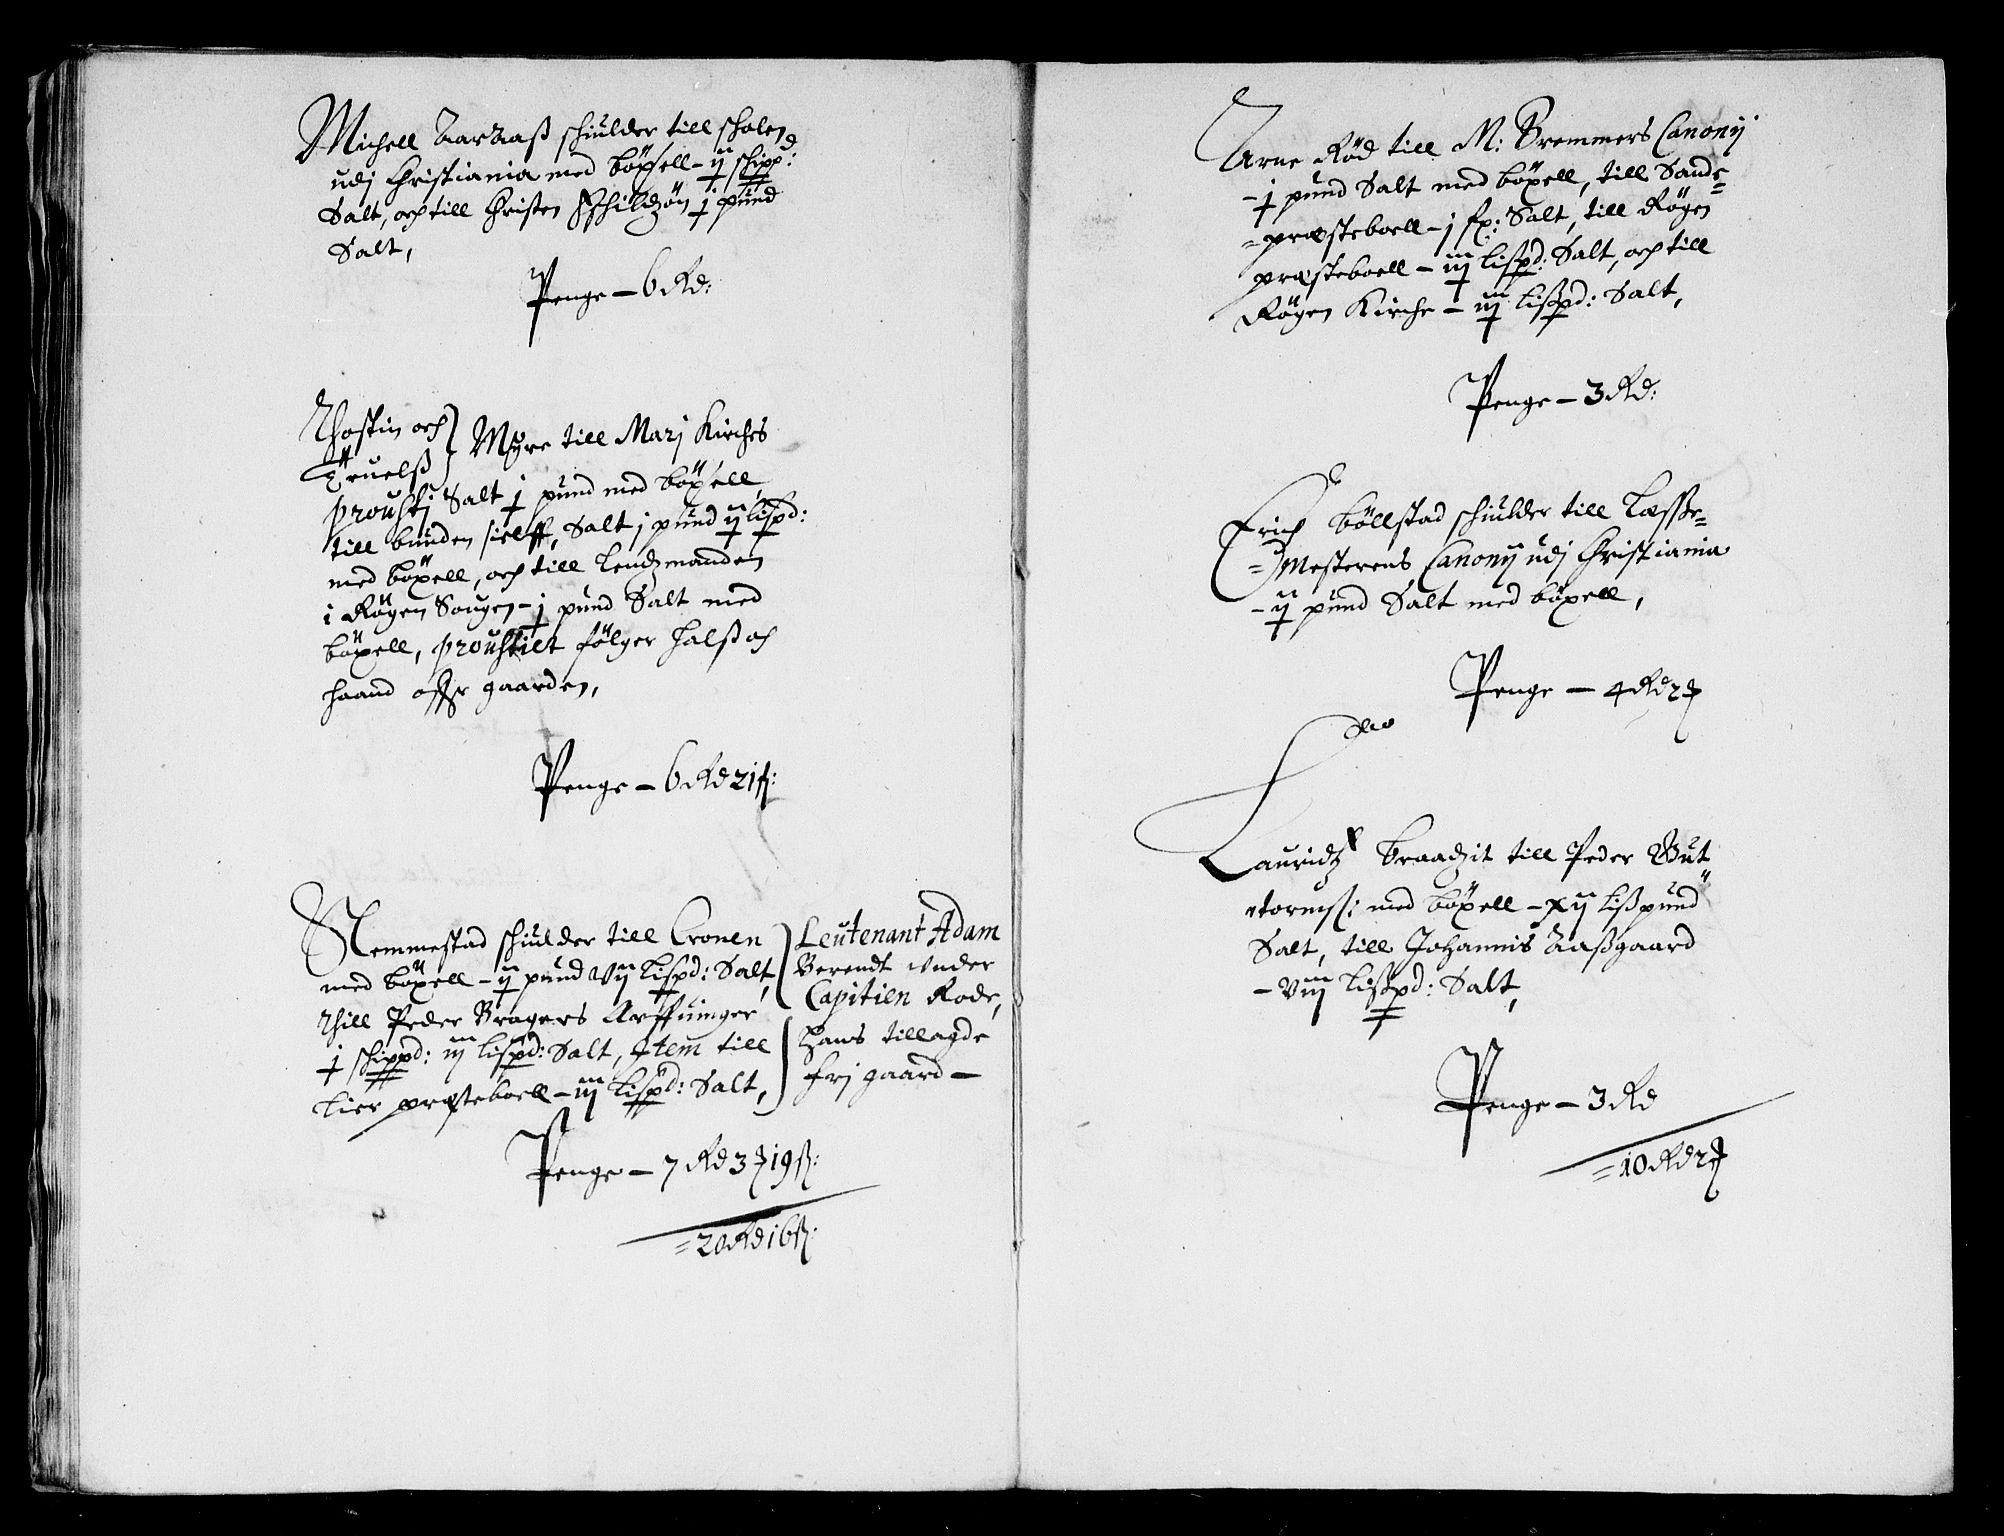 Michell Aaraaß schiulder till scholen
udj Christiania med böxsell – ij schippd:
Salt, och till Christen Eschildzön j pund
Salt,
Penge – 6 Rd:
Thostin och } Myre till Marj Kirches
Truelß
proustj Salt j pund med böxsell,
till bunden sielff, Salt j pund ij lispd:
med böxell, och till Lendzmanden
i Røgen Sougen – j pund Salt med
böxell, proustiet fölger halß och
haand offr gaarden,
Penge – 6 Rd 21 ß:
Nemmestad schiulder till Cronen
med böxell – ij pund vij Lispd: Salt,
Thill Peder Bragers Arffuinger
j schippd: iij lispd: Salt, Item till
Lier præsteboell – iij Lispd: Salt,
Leutenant Adam
Berendt under
Capitien Rode,
Hans tillagde
frj gaard –
Penge – 7 Rd 3 ẜ 19 ß:
= 20 Rd 16 ß:
Arne Röd till M: Bremmers Canonij
– j pund Salt med böxell, till Sands=
=præsteboell – j fr: Salt, till Røgen
præsteboell – iij lispd: Salt, och till
Røgen Kirche – iij lißpd: Salt,
Penge – 3 Rd:
Erich böllstad schiulder till Læsse=
=Mesterens Canonij udj Christiania
– ij pund Salt med böxell,
Penge – 4 Rd 2 ẜ
Lauridtz Braadzit till Peder
med böxell – xij lißpund
Salt, till Johannis Aaßgaard
– viij Lißpd: Salt,
Penge – 3 Rd
= 10 Rd 2 ẜ